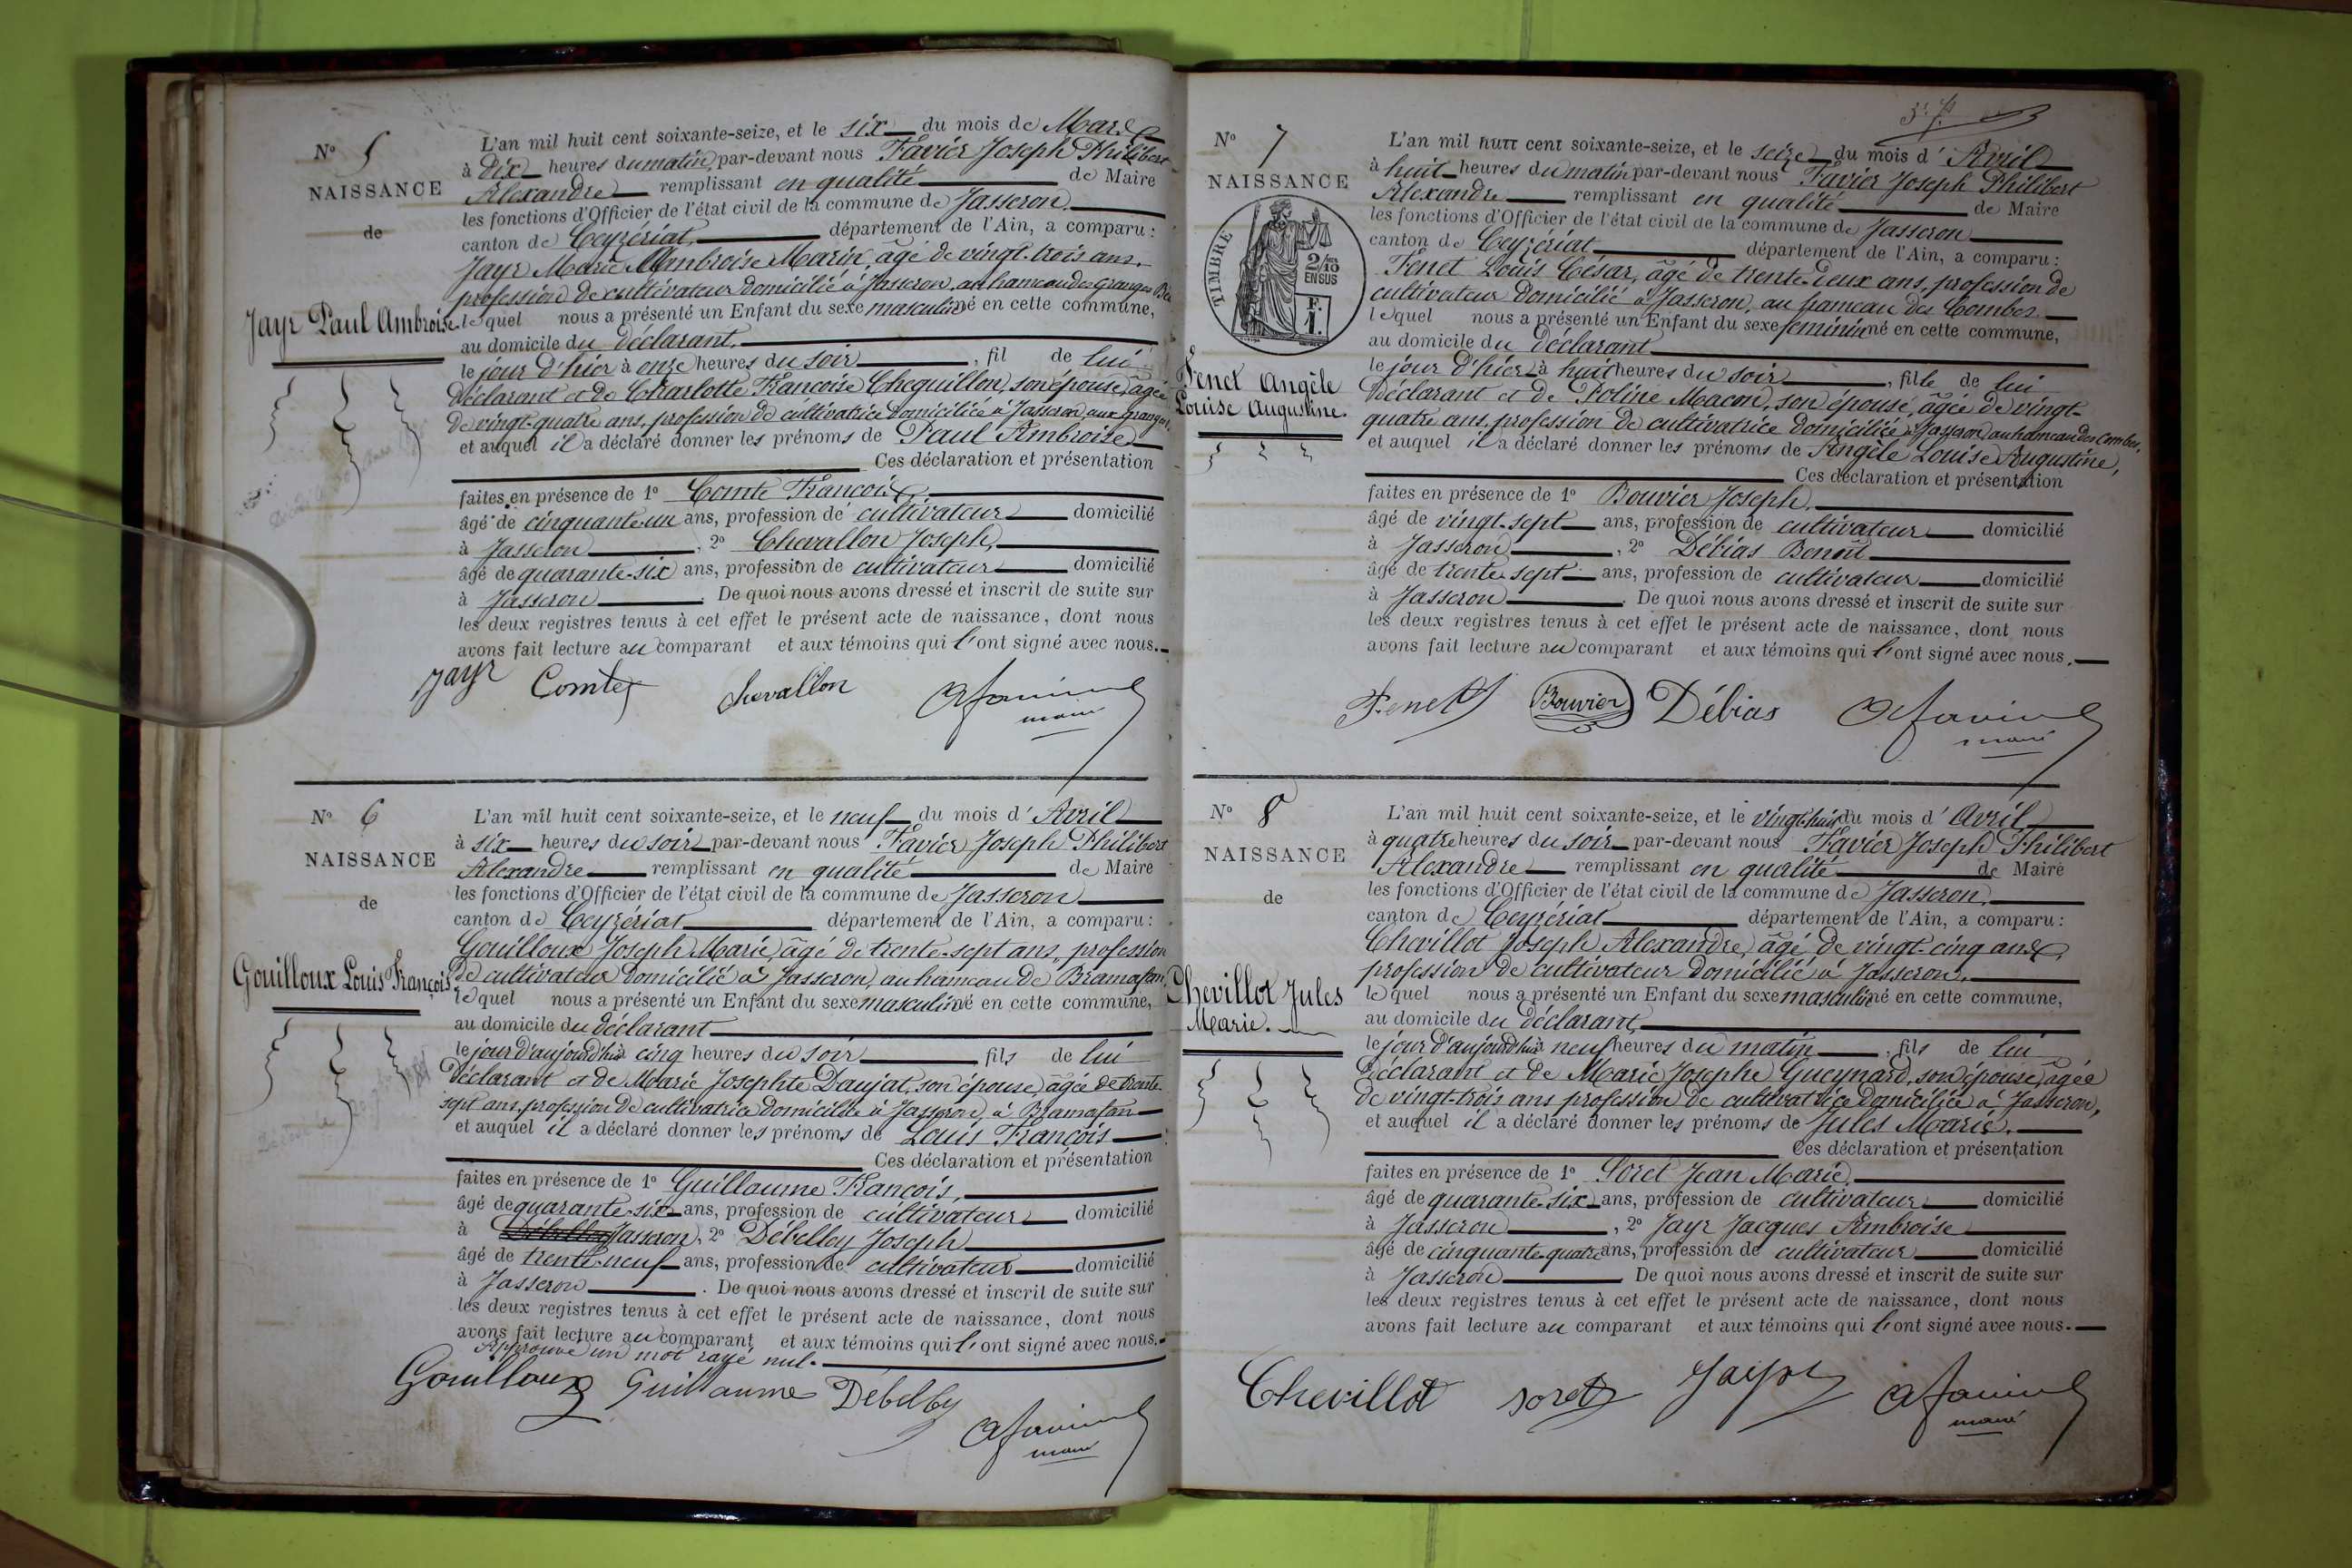 N° 5
NAISSANCE
de
Jayr Paul Ambroise.
L'an mil huit cent soixante-seize, et le six du mois de Mars
à Dix heures du matin, par-devant nous Favier Joseph Philibert
Alexandre remplissant en qualité de Maire
les fonctions d'Officier de l'état civil de la commune de Jasseron
canton de Ceyzériat, département de l'Ain, a comparu :
Jayr Marie Ambroise Marin, âgé de vingt-trois ans,
profession de cultivateur domicilié à Jasseron, au hameau des granges
lequel nous a présenté un Enfant du sexe masculin né en cette commune,
au domicile du déclarant,
le jour d'hier à onze heures du soir, fil de lui
déclarant et de Charlotte Françoise Chequillon, son épouse, âgée
de vingt-quatre ans, profession de cultivatrice domiciliée à Jasseron, aux granges,
et auquel il a déclaré donner les prénoms de Paul Ambroise
Ces déclaration et présentation
faites en présence de 1° Comte François,
âgé de cinquante-un ans, profession de cultivateur domicilié
à Jasseron, 2° Chevallon Joseph,
âgé de quarante-six ans, profession de cultivateur domicilié
à Jasseron. De quoi nous avons dressé et inscrit de suite sur
les deux registres tenus à cet effet le présent acte de naissance, dont nous
avons fait lecture au comparant et aux témoins qui l'ont signé avec nous.
Jayr Comte Chevallon Afavier
maire
N° 6
NAISSANCE
de
Gouilloux Louis François.
L'an mil huit cent soixante-seize, et le neuf du mois d'Avril
à six heures du soir par-devant nous Favier Joseph Philibert
Alexandre remplissant en qualité de Maire
les fonctions d'Officier de l'état civil de la commune de Jasseron
canton de Ceyzériat département de l'Ain, a comparu :
Gouilloux Joseph Marie, âgé de trente-sept ans, profession
de cultivateur domicilié à Jasseron, au hameau de Bramafan,
lequel nous a présenté un Enfant du sexe masculin né en cette commune,
au domicile du déclarant
le jour d'aujourd'hui cinq heures du soir fils de lui
Déclarant et de Marie Josephte Daujat, son épouse, âgée de trente-
sept ans, profession de cultivatrice domiciliée à Jasseron, à Bramafan
et auquel il a déclaré donner les prénoms de Louis François
Ces déclaration et présentation
faites en présence de 1° Guillaume François,
âgé de quarante-six ans, profession de cultivateur domicilié
à Jasseron, 2° Débelley Joseph
âgé de trente-neuf ans, profession de cultivateur domicilié
à Jasseron. De quoi nous avons dressé et inscrit de suite sur
les deux registres tenus à cet effet le présent acte de naissance, dont nous
avons fait lecture au comparant et aux témoins qui l'ont signé avec nous.
Approuvé un mot rayé nul.
Gouilloux Guillaume Debelley
Afavier
maire
N° 7
NAISSANCE
TIMBRE
2/10
EN SUS
Fenet Angèle
Louise Augustine.
L'an mil huit cent soixante-seize, et le seize du mois d'Avril
à huit heures du matin par-devant nous Favier Joseph Philibert
Alexandre remplissant en qualité de Maire
les fonctions d'Officier de l'état civil de la commune de Jasseron
canton de Ceyzériat département de l'Ain, a comparu :
Fenet Louis César, âgé de trente-deux ans, profession de
cultivateur domicilié à Jasseron, au hameau des Combes
lequel nous a présenté un Enfant du sexe féminin né en cette commune,
au domicile du déclarant
le jour d'hier à huit heures du soir, fille de lui
Déclarant et de Poline Macon, son épouse, âgée de vingt-
quatre ans, profession de cultivatrice domiciliée à Jasseron, au hameau des Combes,
et auquel il a déclaré donner les prénoms de Angèle Louise Augustine,
Ces déclaration et présentation
faites en présence de 1° Bouvier Joseph,
âgé de vingt-sept ans, profession de cultivateur domicilié
à Jasseron, 2° Débias Benoît
âgé de trente-sept ans, profession de cultivateur domicilié
à Jasseron. De quoi nous avons dressé et inscrit de suite sur
les deux registres tenus à cet effet le présent acte de naissance, dont nous
avons fait lecture au comparant et aux témoins qui l'ont signé avec nous.
Fenet Bouvier Débias Afavier
maire
N° 8
NAISSANCE
de
Chevillot Jules
Marie.
L'an mil huit cent soixante-seize, et le vingt-huit du mois d'Avril
à quatre heures du soir par-devant nous Favier Joseph Philibert
Alexandre remplissant en qualité de Maire
les fonctions d'Officier de l'état civil de la commune de Jasseron,
canton de Ceyzériat département de l'Ain, a comparu :
Chevillot Joseph Alexandre, âgé de vingt-cinq ans,
profession de cultivateur domicilié à Jasseron,
lequel nous a présenté un Enfant du sexe masculin né en cette commune,
au domicile du déclarant,
le jour d'aujourd'hui neuf heures du matin, fils de lui
Déclarant et de Marie Josephe Gueynard, son épouse, âgée
de vingt-trois ans profession de cultivatrice domiciliée à Jasseron,
et auquel il a déclaré donner les prénoms de Jules Marie.
Ces déclaration et présentation
faites en présence de 1° Soret Jean Marie,
âgé de quarante-six ans, profession de cultivateur domicilié
à Jasseron, 2° Jayr Jacques Ambroise
âgé de cinquante-quatre ans, profession de cultivateur domicilié
à Jasseron De quoi nous avons dressé et inscrit de suite sur
les deux registres tenus à cet effet le présent acte de naissance, dont nous
avons fait lecture au comparant et aux témoins qui l'ont signé avec nous.
Chevillot Soret Jayr Afavier
maire